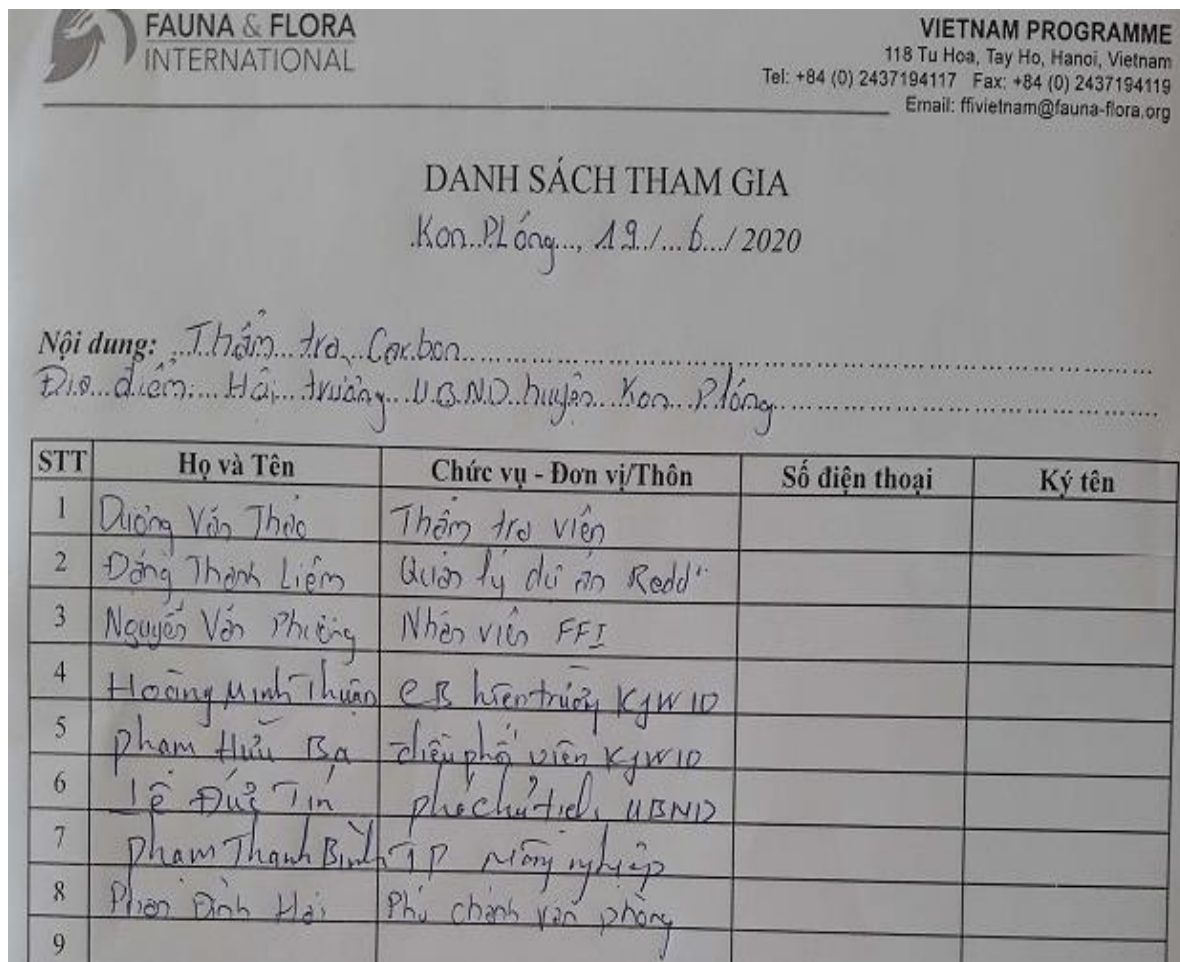 FAUNA & FLORA
INTERNATIONAL
VIETNAM PROGRAMME
118 Tu Hoa, Tay Ho, Hanoi, Vietnam
Tel: +84 (0) 2437194117 Fax: +84 (0) 2437194119
Email: ffivietnam@fauna-flora.org
DANH SÁCH THAM GIA
Kon PLóng, 19/6/2020
Nội dung: Thẩm tra Carbon
Địa điểm: Hội trường UBND huyện Kon Plông
STT Họ và Tên Chức vụ - Đơn vị/Thôn Số điện thoại Ký tên
1 Dương Văn Thảo Thẩm tra viên
2 Đặng Thanh Liêm Quản lý dự án Redd+
3 Nguyễn Văn Phương Nhân viên FFI
4 Hoàng Minh Thuận CB hiện trường KfW10
5 Phạm Hữu Ba điều phối viên KfW10
6 Lê Đức Tín phó chủ tịch UBND
7 Phạm Thanh Bình TP nông nghiệp
8 Phan Đình Hải Phó chánh văn phòng
9